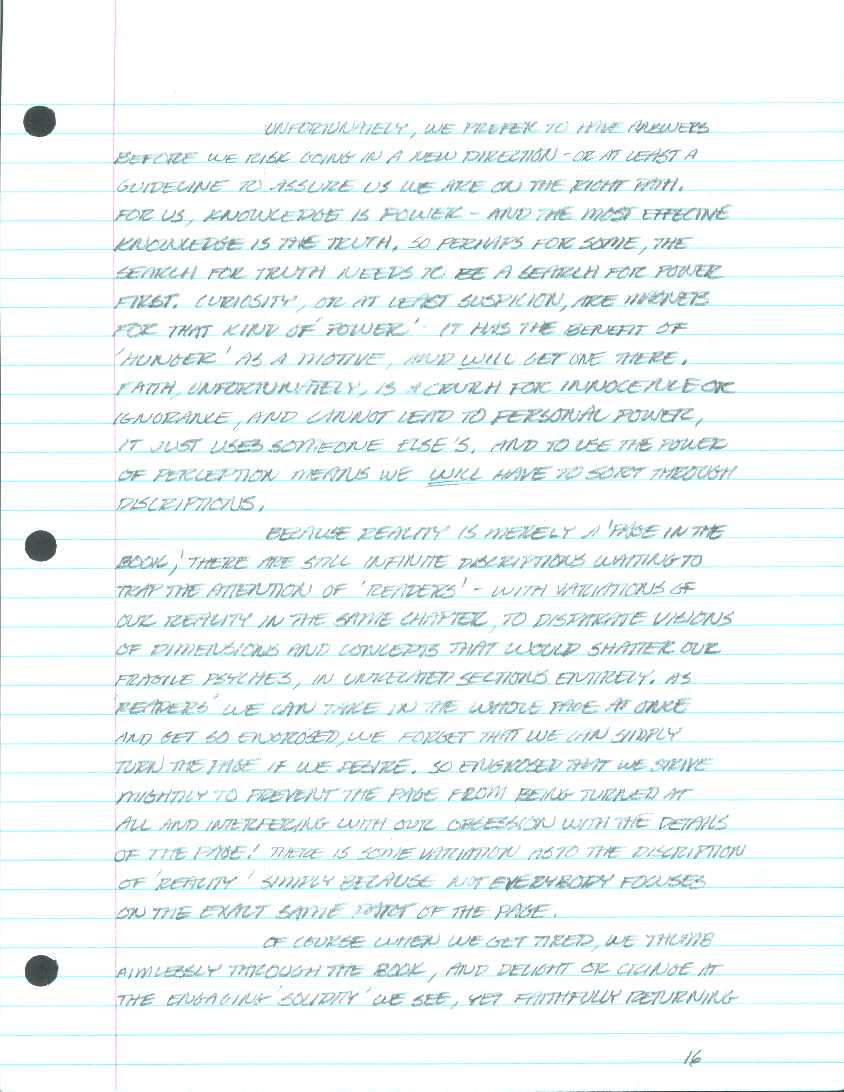 UNFORTUNATELY, WE PREFER TO HAVE ANSWERS
BEFORE WE RISK GOING IN A NEW DIRECTION - OR AT LEAST A
GUIDELINE TO ASSURE US WE ARE ON THE RIGHT PATH.
FOR US, KNOWLEDGE IS POWER - AND THE MOST EFFECTIVE
KNOWLEDGE IS THE TRUTH. SO PERHAPS FOR SOME, THE
SEARCH FOR TRUTH NEEDS TO BE A SEARCH FOR POWER
FIRST. CURIOSITY, OR AT LEAST SUSPICION, ARE MAGNETS
FOR THAT KIND OF 'POWER' - IT HAS THE BENEFIT OF
'HUNGER' AS A MOTIVE, AND WILL GET ONE THERE.
FAITH, UNFORTUNATELY, IS A CRUTCH FOR INNOCENCE OR
IGNORANCE, AND CANNOT LEAD TO PERSONAL POWER,
IT JUST USES SOMEONE ELSE'S. AND TO USE THE POWER
OF PERCEPTION MEANS WE WILL HAVE TO SORT THROUGH
DISCRIPTIONS.
BECAUSE REALITY IS MERELY A 'PAGE IN THE
BOOK,' THERE ARE STILL INFINITE DISCRIPTIONS WAITING TO
TRAP THE ATTENTION OF 'READERS' - WITH VARIATIONS OF
OUR REALITY IN THE SAME CHAPTER, TO DISPARATE VISIONS
OF DIMENSIONS AND CONCEPTS THAT WOULD SHATTER OUR
FRAGILE PSYCHES, IN UNRELATED SECTIONS ENTIRELY. AS
'READERS' WE CAN TAKE IN THE WHOLE PAGE AT ONCE
AND GET SO ENGROSED, WE FORGET THAT WE CAN SIMPLY
TURN THE PAGE IF WE DESIRE. SO ENGROSED THAT WE STRIVE
MIGHTILY TO PREVENT THE PAGE FROM BEING TURNED AT
ALL AND INTERFERING WITH OUR OBSESSION WITH THE DETAILS
OF THE PAGE! THERE IS SOME VARIATION AS TO THE DISCRIPTION
OF 'REALITY' SIMPLY BECAUSE NOT EVERYBODY FOCUSES
ON THE EXACT SAME PART OF THE PAGE.
OF COURSE WHEN WE GET TIRED, WE THUMB
AIMLESSLY THROUGH THE BOOK, AND DELIGHT OR CRINGE AT
THE ENGAGING 'SOLIDITY' WE SEE, YET FAITHFULLY RETURNING
16